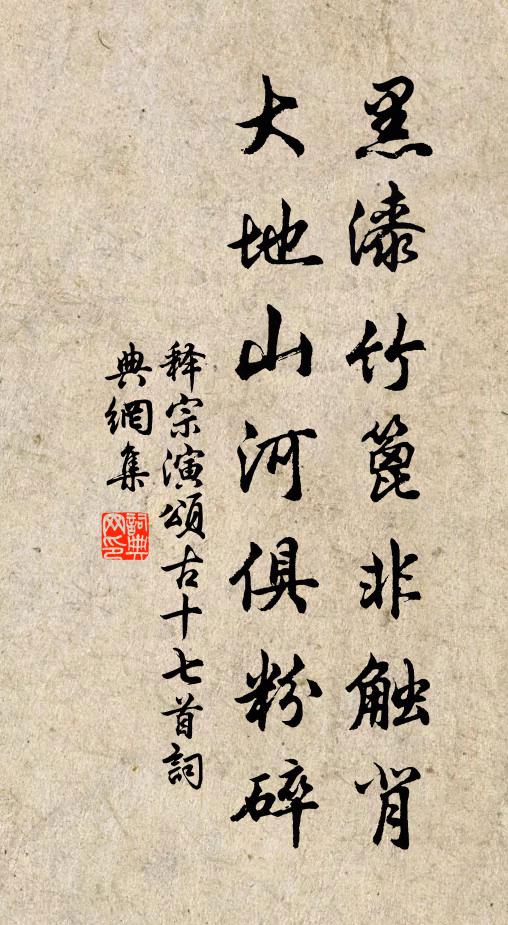 黑漆竹篦非触背
大地山河俱粉碎
释宗演頌古十七首詞
典網集
詞典网印